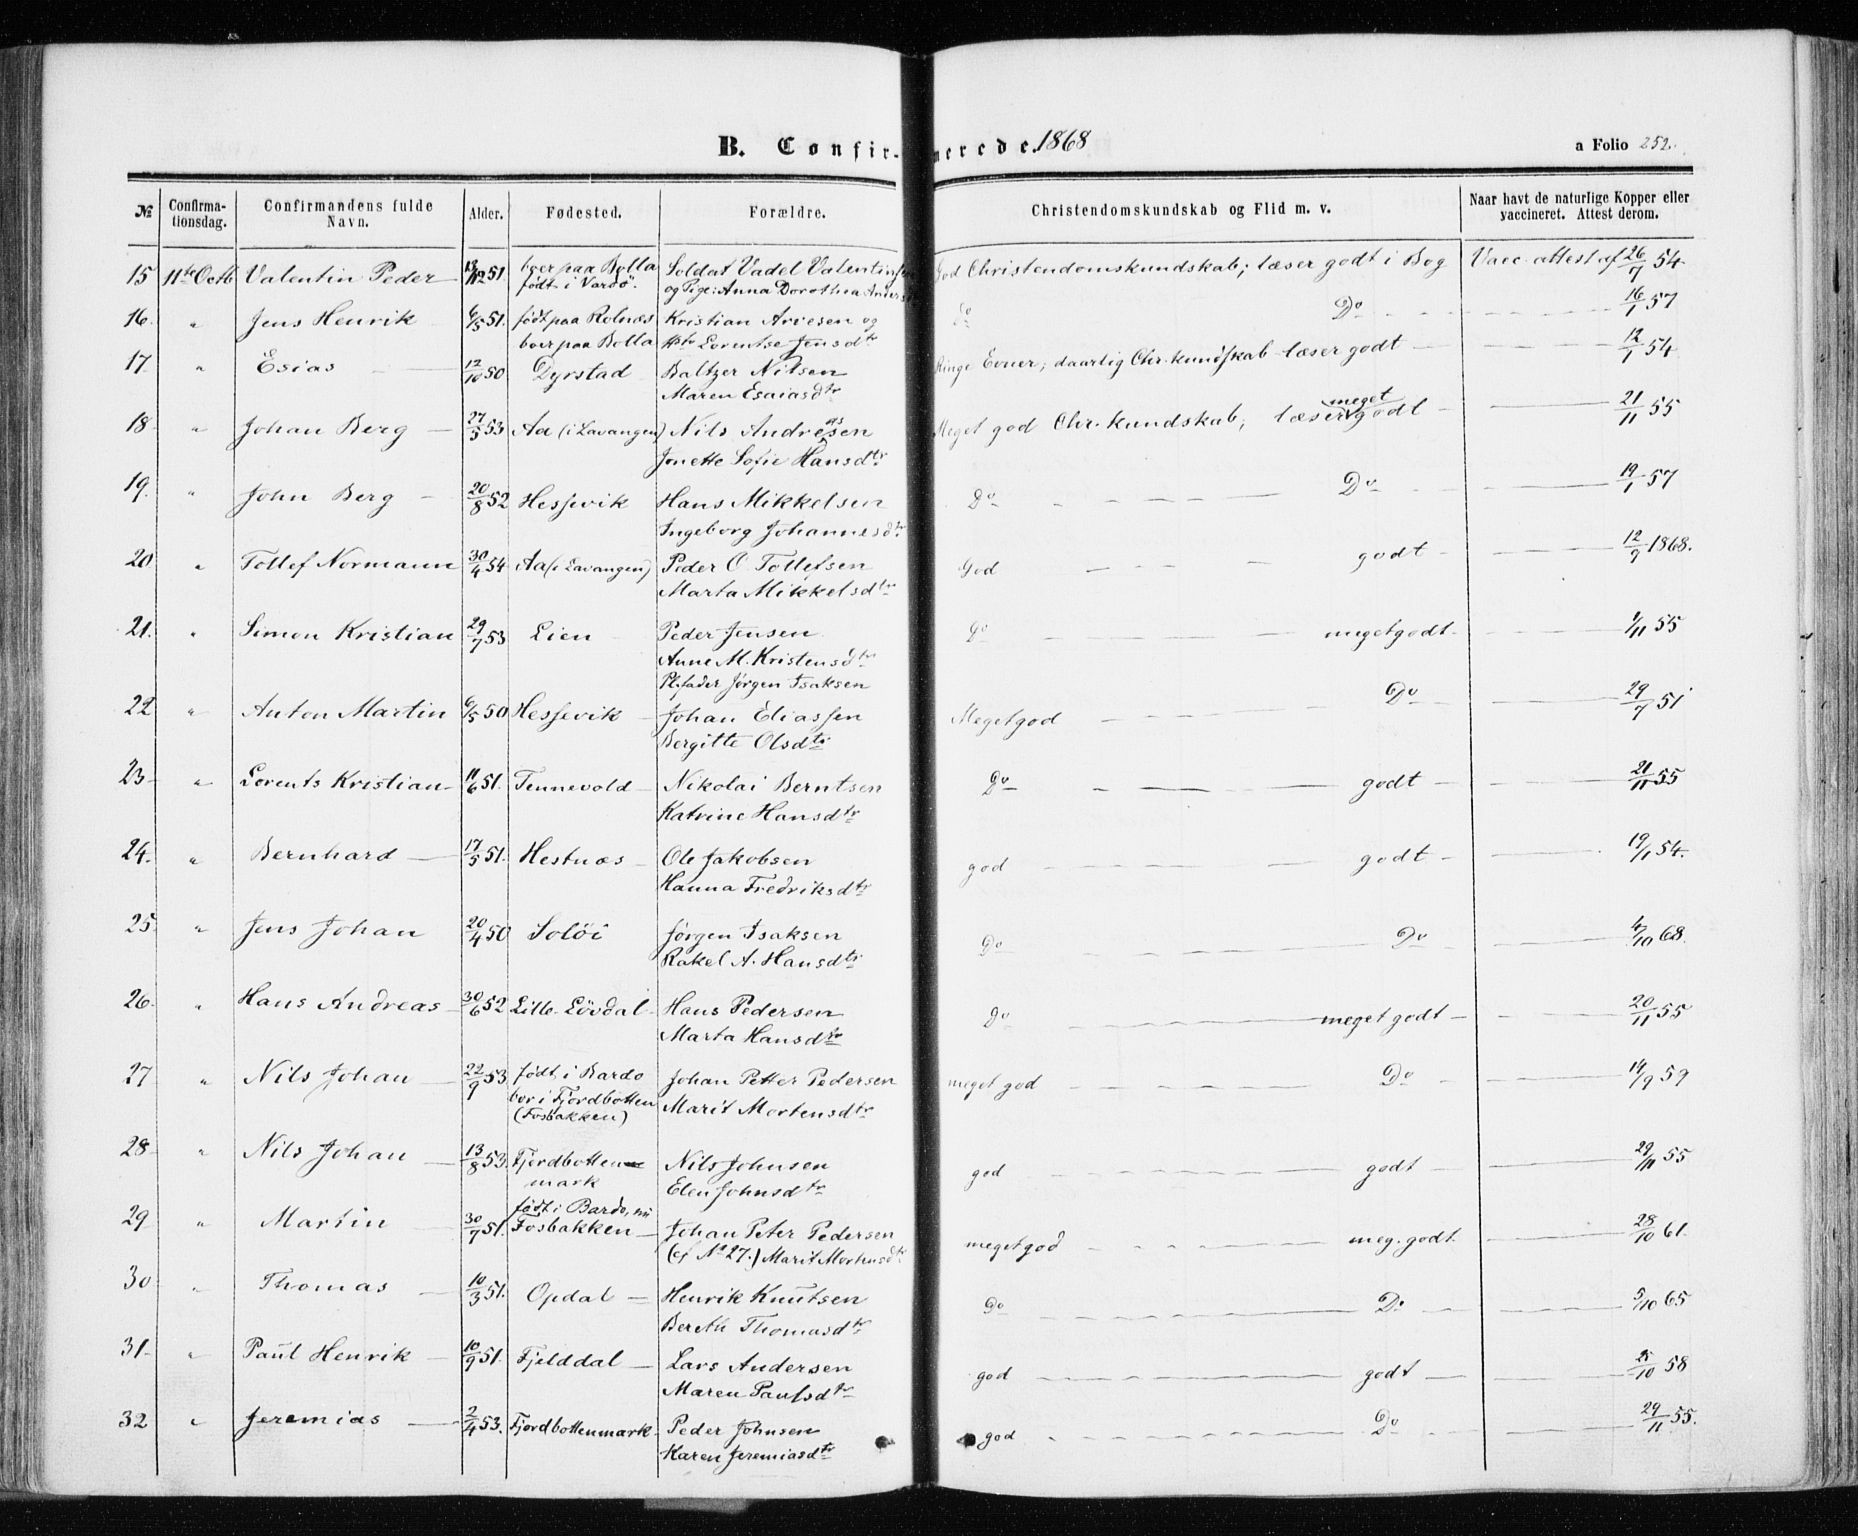 B. Confirmerede. 1868
a Folio 252.
№ Confirmationsdag. Confirmandens fulde Navn. Alder. Fødested. Forældre. Christendomskundskab og Flid m. v. Naar havt de naturlige Kopper eller vaccineret. Attest derom.
15 11te Octb Valentin Peder 51. boer paa Bolla Soldat Vadel Valentinsen God Christendomskundskab; læser godt i Bog Vacc. attest af 26/7 54.
født i Vardö. og Pige: Anna Dorothea
16. " Jens Henrik 6/5 51. født paa Rolnæs Kristian Ariesen og Do Do 16/1 57
boer paa Bolla Lorentse Jensdtr
17. " Esias 12/10 50 Dyrstad Baltzer Nilsen Ringe Evner; daarlig Chr. kundskab læser godt 12/1 54
Maren Esaiasdtr
18. " Johan Berg 27/5 53 Aa (i Lavangen) Nils Andresen Meget god Chr. kundskab; læser meget godt 21/11 55
Jonette Sofie Hansdtr
19. " John Berg 20/8 52 Hessevik Hans Mikkelsen Do Do 19/1 57
Ingeborg Johannesdtr
20 " Tollef Normann 30/4 54 Aa (i Lavangen) Peder O. Tollefsen God godt 12/9 1868.
Marta Mikkelsdtr
21. " Simon Kristian 29/7 53 Lien Peder Jensen Do meget godt 1/11 55
Anne M. Kristensdtr
Plefader Jørgen Isaksen
22 " Anton Martin 6/5 50 Hessevik Johan Eliassen Meget god Do 29/7 51
Bergitte Olsdtr
23 " Lorents Kristian 11/6 51. Tennevold Nikolai Berntsen Do godt 21/11 55
Katrine Hansdtr
24. " Bernhard 17/5 51. Hestnæs Ole Jakobsen god godt 19/1 54.
Hanna Fredriksdtr
25 " Jens Johan 20/4 50 Solöi Jørgen Isaksen Do Do 4/10 68.
Rakel A. Hansdtr
26 " Hans Andreas 30/6 52 Lille Lövdal Hans Pedersen Do meget godt 20/11 55
Marta Hansdtr
27 " Nils Johan 22/9 53 født i Bardo Johan Petter Pedersen meget god Do 14/9 59
bor i Fjordbotten Marit Mortensdtr
(Fosbakken)
28 " Nils Johan 13/8 53. Fjordbotten Nils Johnsen god godt 29/11 55
mark Elen Johnsdtr
født i Bardo, nu
29 " Martin 30/7 51. Fosbakken Johan Peter Pedersen meget god meg. godt. 28/10 61.
(cf No 27.) Marit Mortensdtr
30 " Thomas 10/3 51. Opdal Henrik Knutsen Do Do 5/10 65
Bereth Thomasdtr
31 " Paul Henrik 10/9 51. Fjelddal Lars Andersen god godt 25/10 58
Maren Paulsdtr
32 " Jeremias 2/4 53. Fjordbottenmark Peder Johnsen god Do 29/11 55.
Karen Jeremiasdtr